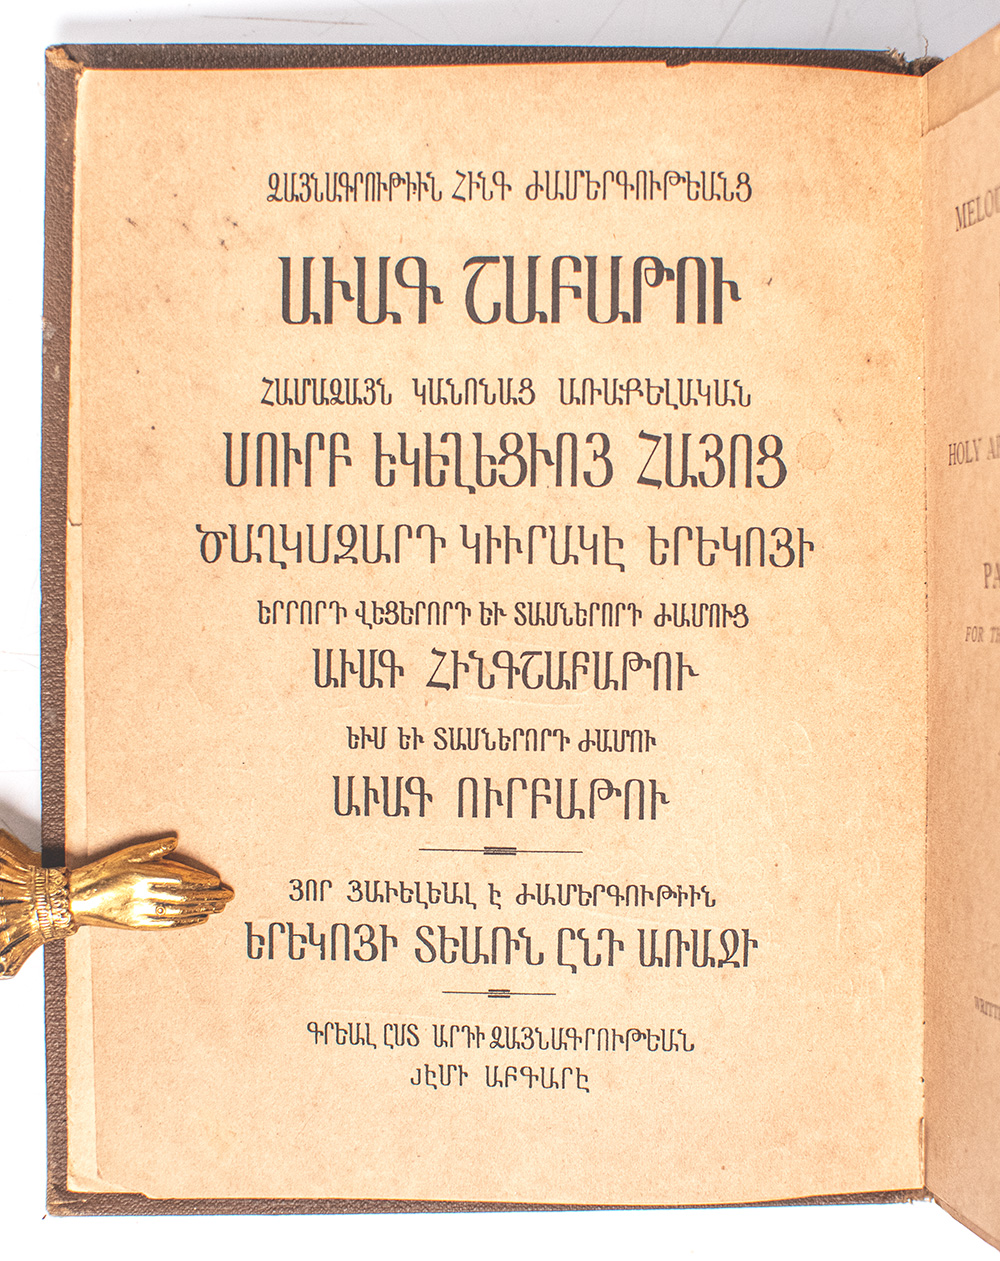 ՁԱՅՆԱԳՐՈՒԹԻԻՆ ՀԻՆԳ ԺԱՄԵՐԳՈՒԹԵԱՆՑ
ԱՒԱԳ ՇԱԲԱԹՈՒ
ՀԱՄԱՁԱՅՆ ԿԱՆՈՆԱՑ ԱՌԱՔԵԼԱԿԱՆ
ՍՈՒՐԲ ԵԿԵՂԵՑՒՈՅ ՀԱՅՈՑ
ԾԱՂԿԱԶԱՐԴ ԿԻՒՐԱԿԷ ԵՐԵԿՈՅԻ
ԵՐՐՈՐԴ ՎԵՑԵՐՈՐԴ ԵՒ ՏԱՍՆԵՐՈՐԴ ԺԱՄՈՒՑ
ԱՒԱԳ ՀԻՆԳՇԱԲԱԹՈՒ
ԵՒՍ ԵՒ ՏԱՍՆԵՐՈՐԴ ԺԱՄՈՒ
ԱՒԱԳ ՈՒՐԲԱԹՈՒ
ՅՈՐ ՅԱՒԵԼԵԱԼ Է ԺԱՄԵՐԳՈՒԹԻԻՆ
ԵՐԵԿՈՅԻ ՏԵԱՌՆ ԸՆԴ ԱՌԱՋԻ
ԳՐԵԱԼ ԸՍՏ ԱՐԴԻ ՁԱՅՆԱԳՐՈՒԹԵԱՆ
ՃԷՄԻ ԱԲԳԱՐԷ
MELOD
HOLY A
PA
FOR TH
WRITT